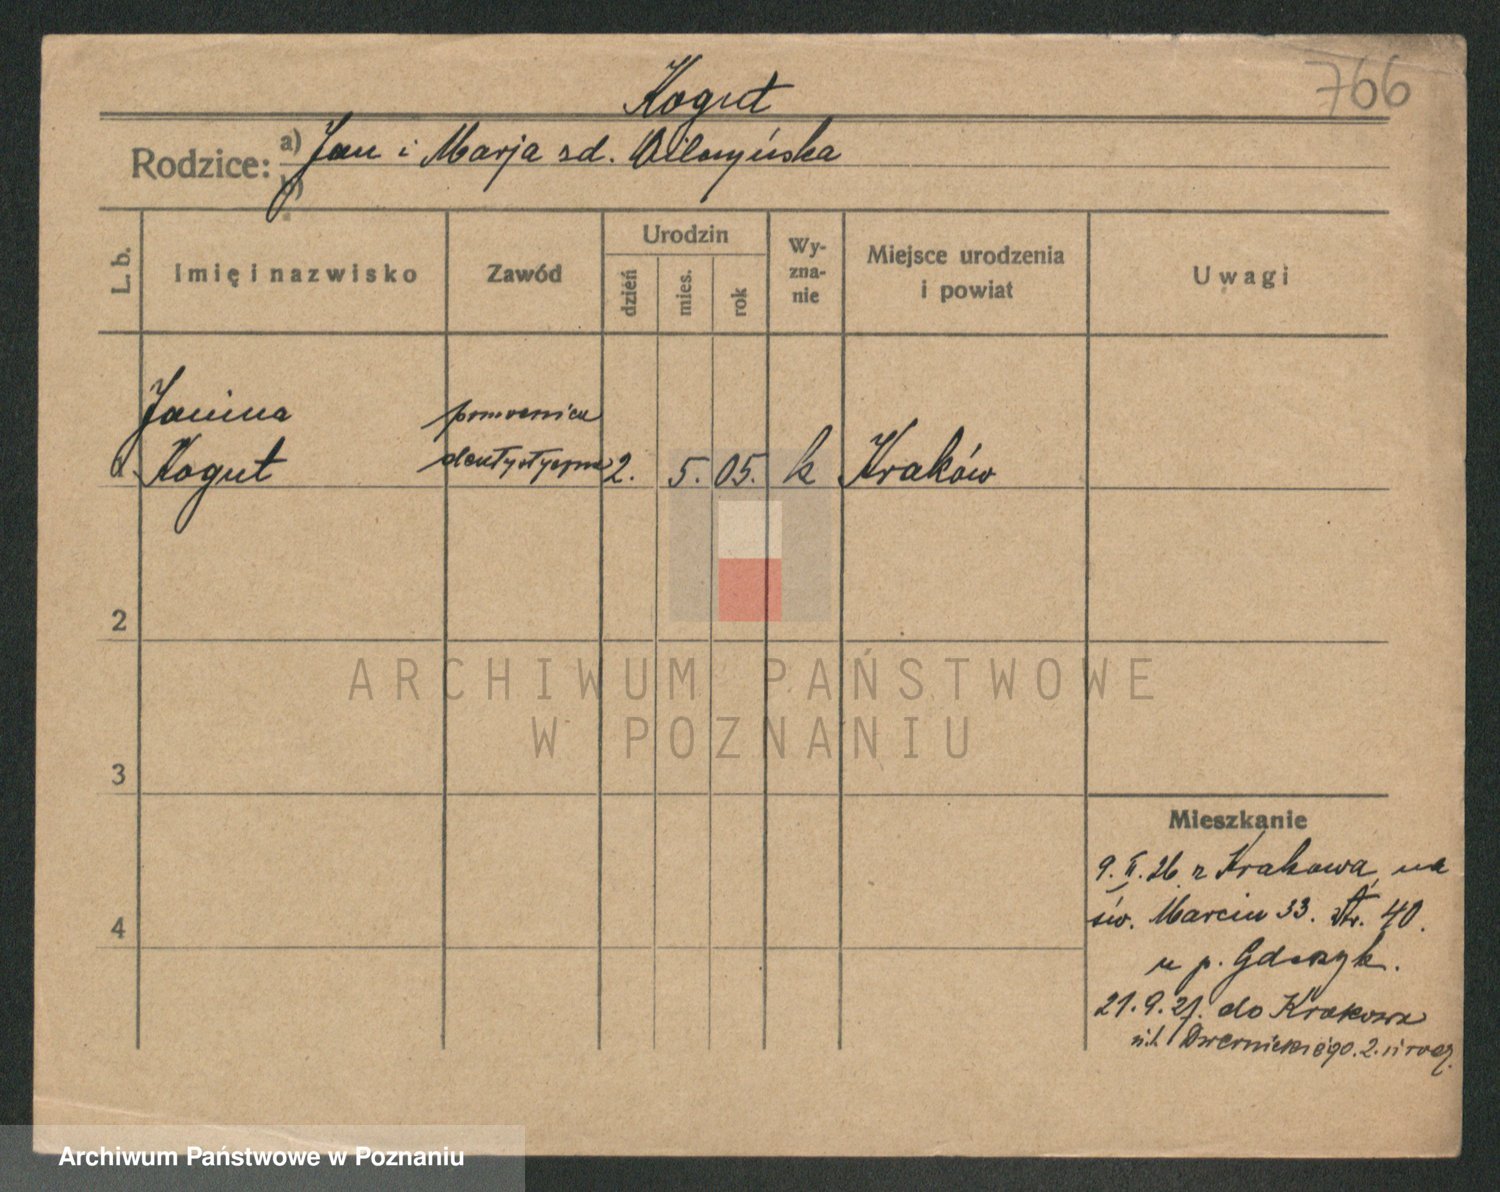 Kogut
766
Rodzice: a) Jan i Marja zd.
b)
L. b.
Imię i nazwisko
Zawód
Urodzin
dzień
mies.
rok
Wy-
zna-
nie
Miejsce urodzenia
i powiat
Uwagi
Janina
Kogut
pomocnica
dentystyczna
2. 5. 05. k Kraków
2
3
4
ARCHIWUM PAŃSTWOWE
W POZNANIU
Mieszkanie
9. II. 26 z Krakowa, na
św. Marcin 33. Str. 40.
u p.
21. 9. 27. do Krakowa
ul. Dwernickiego 2.
Archiwum Państwowe w Poznaniu